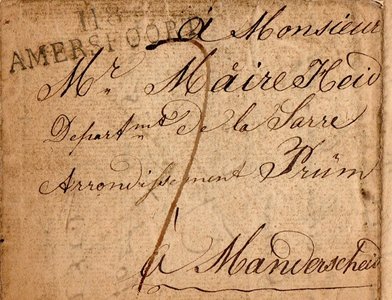 118
AMERSFOORT
á Monsieur
Mr. Máire Heid
Departmt de la Sarre
Arrondissement Prüm
á Manderscheid